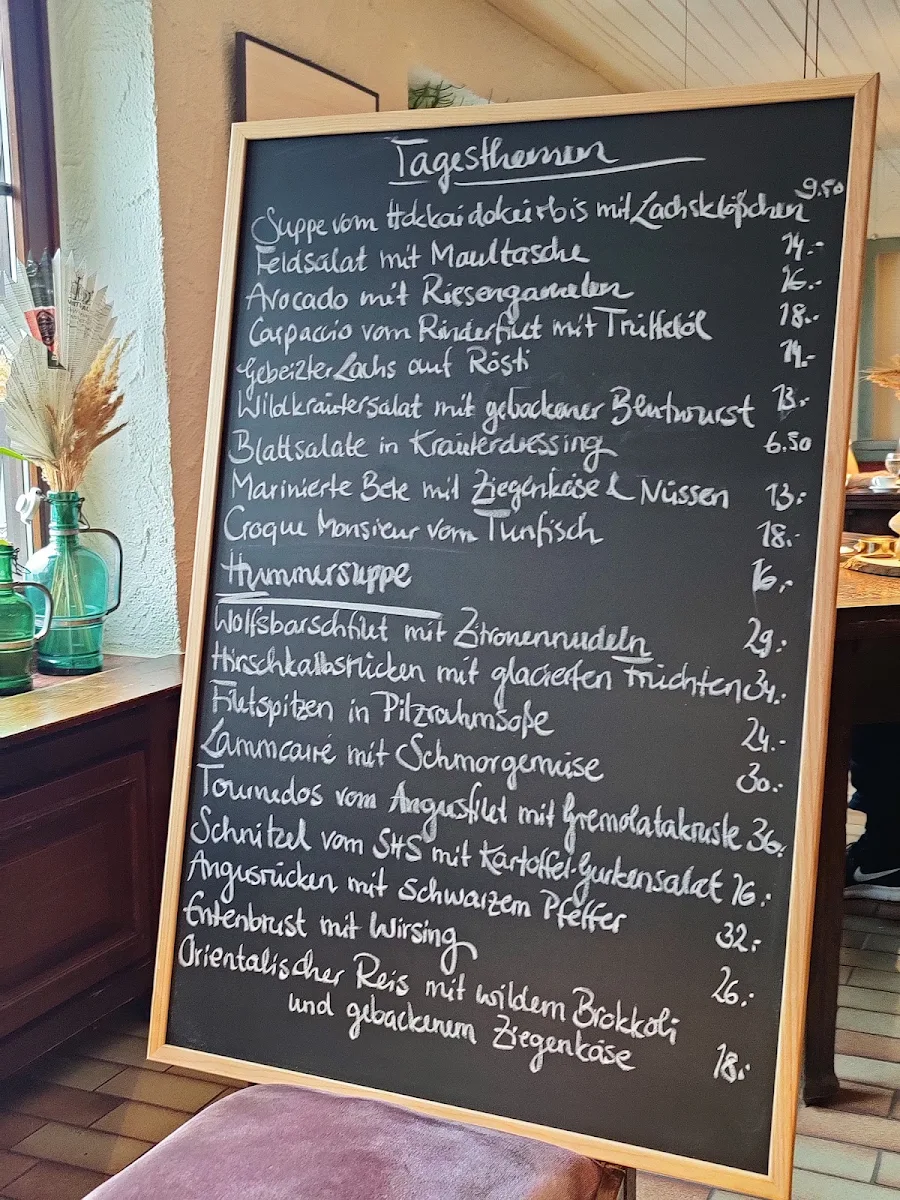 Tagesthemen
Suppe vom Hokkaidokürbis mit Lachsklößchen 9.50
Feldsalat mit Maultasche 14.-
Avocado mit Riesengarnelen 16.-
Carpaccio vom Rinderfilet mit Trüffelöl 18.-
Gebeizter Lachs auf Rösti 14.-
Wildkräutersalat mit gebackener Blutwurst 13.-
Blattsalate in Kräuterdressing 6.50
Marinierte Bete mit Ziegenkäse & Nüssen 13.-
Croque Monsieur vom Tunfisch 18.-
Hummersuppe 16.-
Wolfsbarschfilet mit Zitronennudeln 29.-
Hirschkalbsrücken mit glacierten Früchten 34.-
Filetspitzen in Pilzrahmsoße 24.-
Lammcarré mit Schmorgemüse 30.-
Tournedos vom Angusfilet mit Gremolatakruste 36.-
Schnitzel vom SHS mit Kartoffel-Gurkensalat 16.-
Angusrücken mit Schwarzem Pfeffer 32.-
Entenbrust mit Wirsing 26.-
Orientalischer Reis mit wildem Brokkoli
und gebackenem Ziegenkäse 18.-